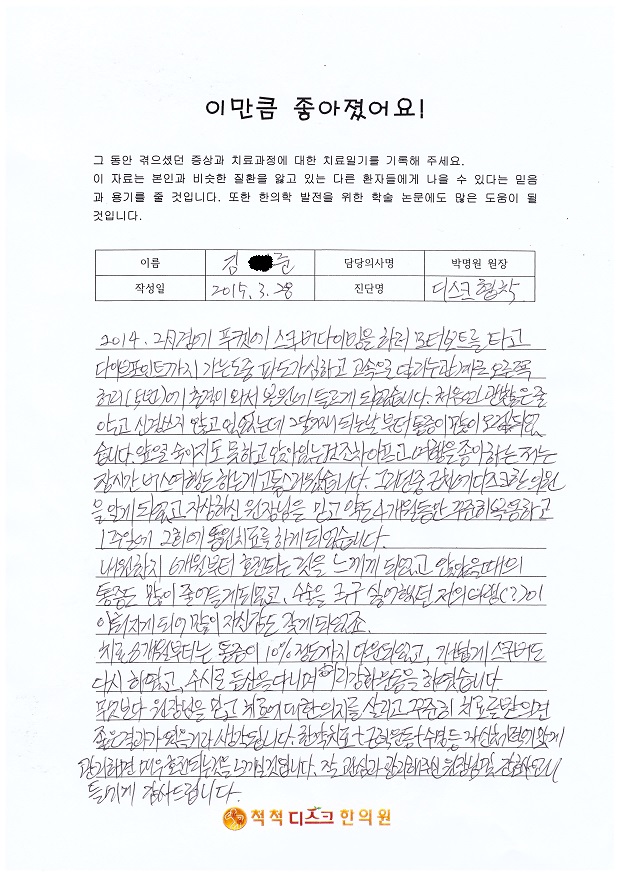 이만큼 좋아졌어요!
그 동안 겪으셨던 증상과 치료과정에 대한 치료일기를 기록해 주세요.
이 자료는 본인과 비슷한 질환을 앓고 있는 다른 환자들에게 나을 수 있다는 믿음
과 용기를 줄 것입니다. 또한 한의학 발전을 위한 학술 논문에도 많은 도움이 될
것입니다.
이름 김 준 담당의사명 박명원 원장
작성일 2015. 3. 28 진단명 디스크 협착
2014. 2월경에 푸켓에 스쿠버다이빙을 하러 모터보트를 타고
다이브포인트까지 가는도중 파도가심하고 고속을 오른쪽
허리 에 충격이 와서 병원에 들르게 되었습니다. 처음엔 괜찮은줄
알고 신경쓰지 않고 있었는데 2달째 되는날 부터 통증이 많이
습니다. 앞을 숙이지도 못하고 앉아있는것조차 아프고 여행을 좋아하는 저는
장시간 버스여행도 하는게 고통스러웠습니다. 그러던중 디스크한의원
을 알게 되었고 자상하신 원장님을 믿고 약도 4개월동안 꾸준히 복용하고
1주일에 2회에 통원치료를 하게 되었습니다.
내원한지 6개월부터 호전되는 것을 느끼게 되었고 앉았을때의
통증도 많이 줄어들게 되었고, 수술을 싫어했던 저의 다짐(?)이
되어 많이 자신감도 갖게되었죠.
치료 8개월부터는 통증이 10%정도까지 다운되었고, 가볍게 스쿠버도
다시 하였고, 수시로 등산을 다니며 허리강화운동을 하였습니다.
무엇보다 원장님을 믿고 치료에 대한 의지를 살리고 꾸준히 치료를 받으면
좋은결과가 있을거라 생각됩니다. 한약치료+근력운동+수영등 자신의 체력에 맞게
관리하면 매우 호전되는것을 느끼실 것입니다. 관심과 관리해주신 원장님
들에게 감사드립니다.
척척디스크한의원